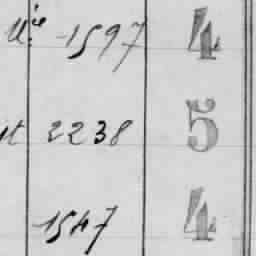 Mie 1597 4
t 2238 5
1547 4